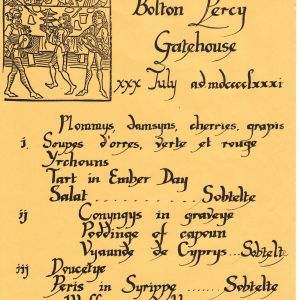 Bolton Percy
Gatehouse
xxx July admdcccclxxxi
Plommys, damsyns, cherries, grapis
i. Soupes d'orres, verte et rouge
Yrchouns
Tart in Ember Day
Salat .......... Sobtelte
ij Conyngys in graveye
Poddinge of capoun
Vyaunde de Cyprys...Sobtelt
iij Doucetye
Peris in Syrippe .... Sobtelte